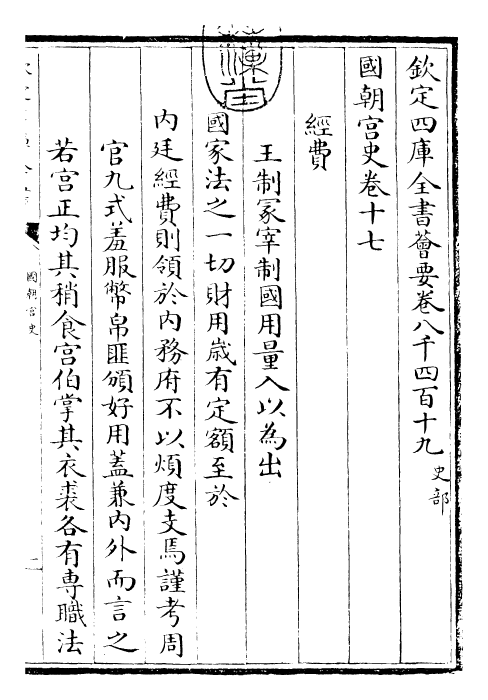 欽定四庫全書薈要卷八千四百十九 史部
國朝宫史卷十七
經費
王制冡宰制國用量入以為出
國家法之一切財用歳有定額至於
内廷經費則領於内務府不以煩度支焉謹考周
官九式羞服幣帛匪頒好用蓋兼内外而言之
若宫正均其稍食宫伯掌其衣裘各有専職法
國朝宫史